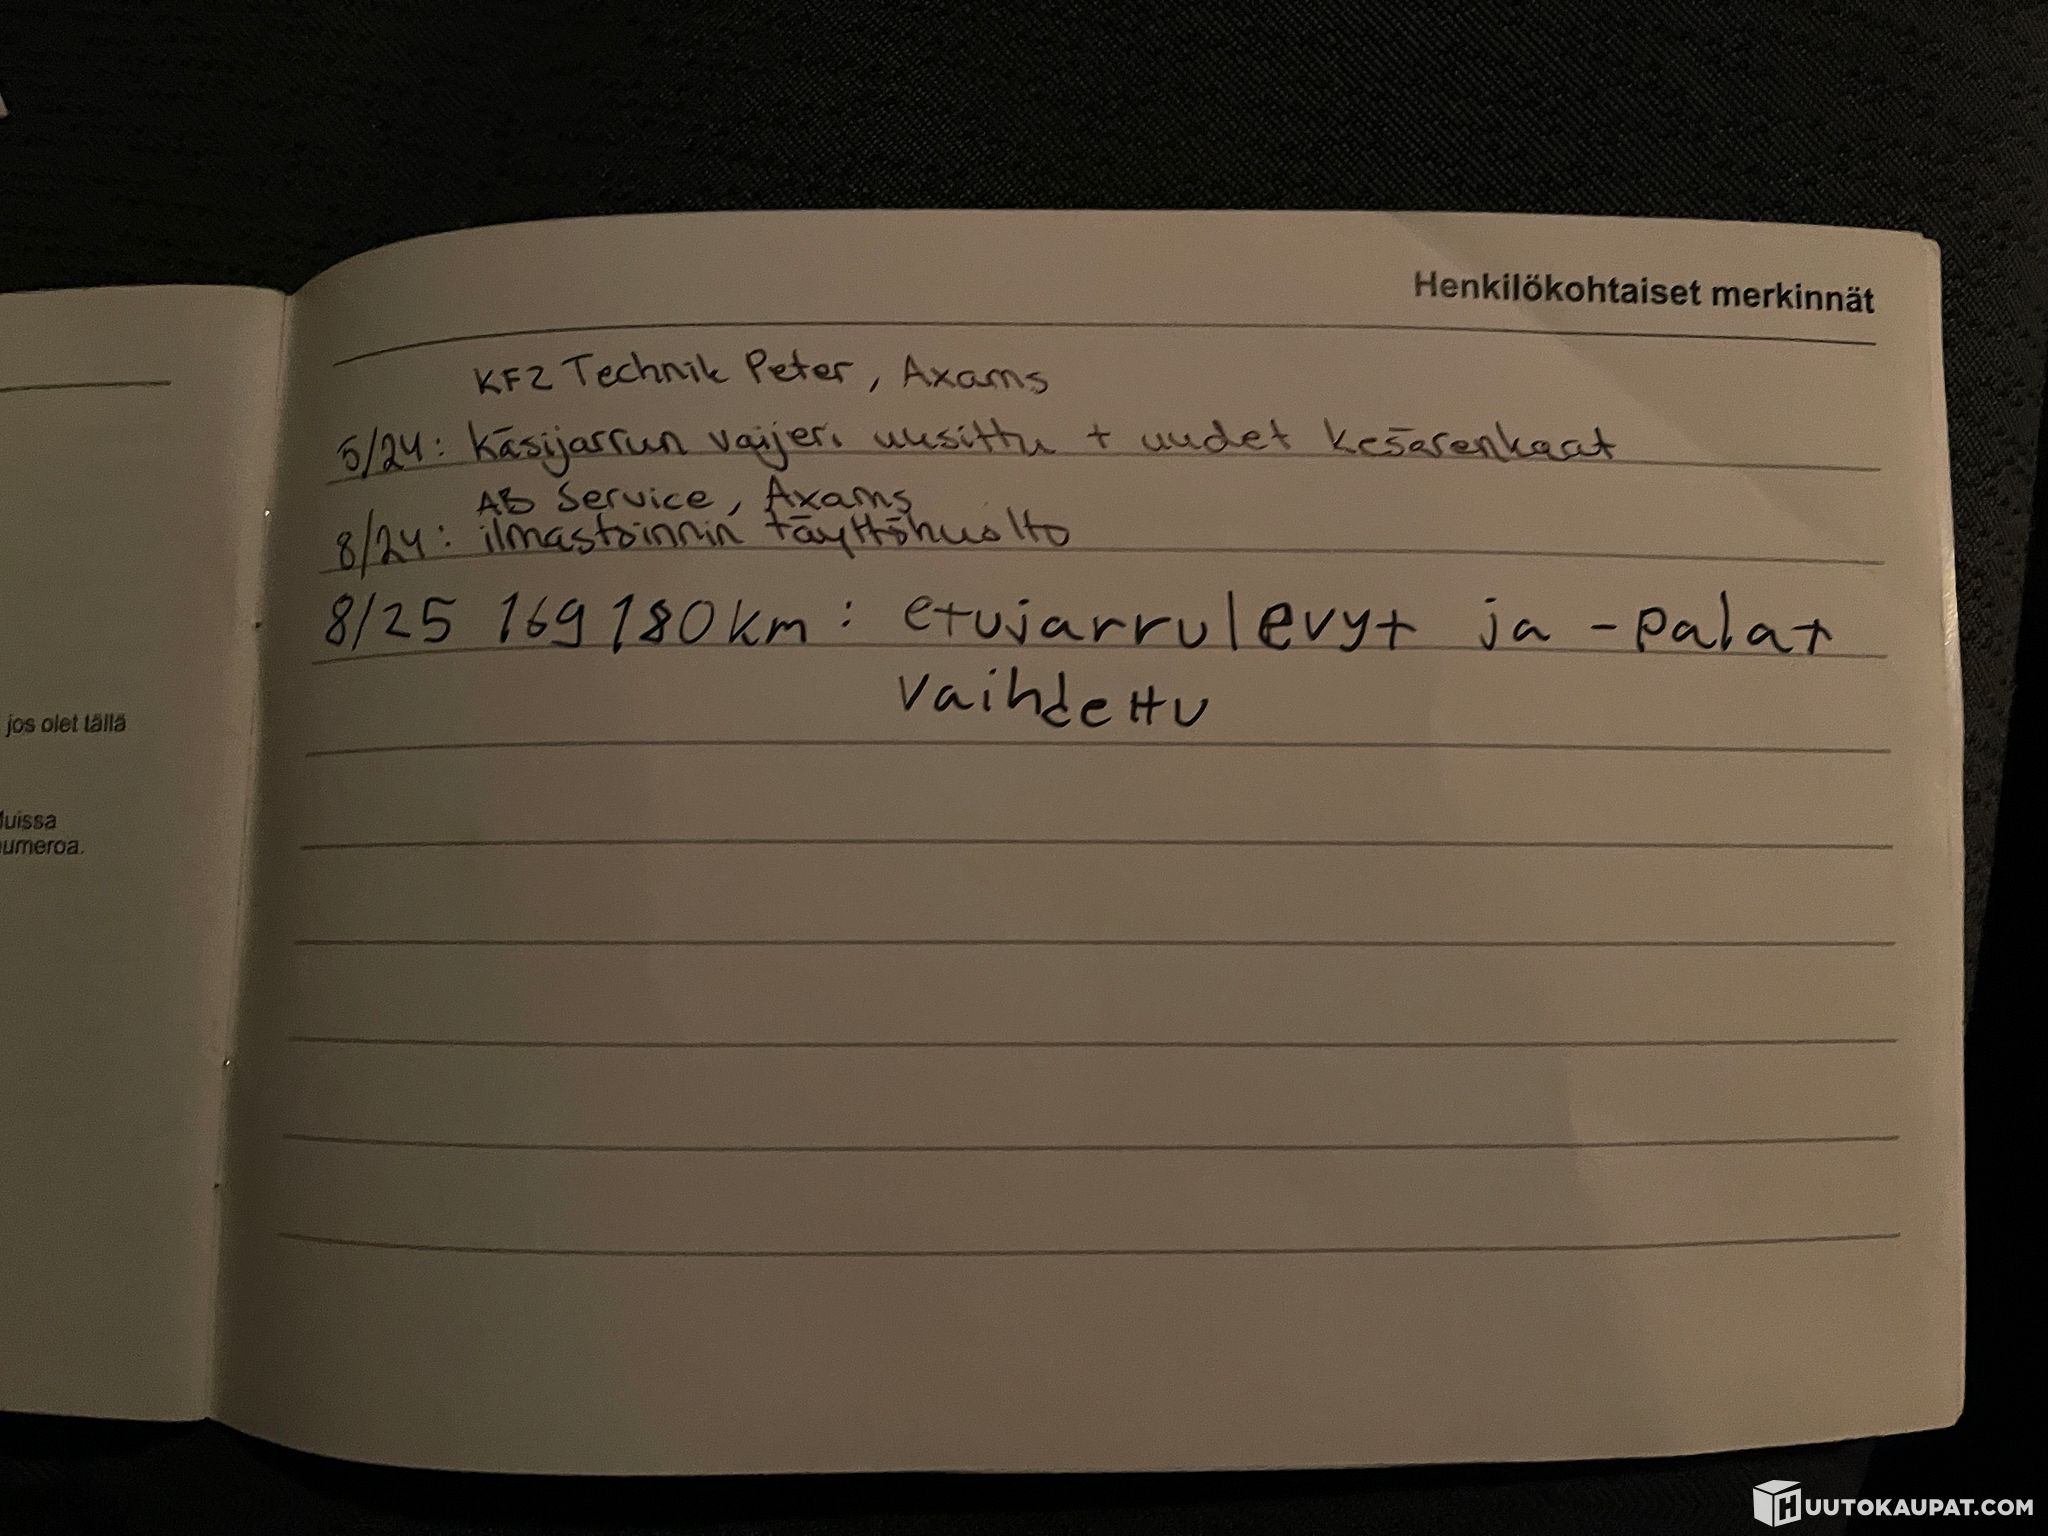 jos olet tällä
uissa
umeroa.
Henkilökohtaiset merkinnät
KFZ Technik Peter, Axams
5/24: Käsijarrun vaijeri uusittu + uudet kesärenkaat
AB Service, Axams
8/24: ilmastoinnin täyttöhuolto
8/25 169 180 km: etujarrulevyt ja -palat
vaihdettu
HUUTOKAUPAT.COM